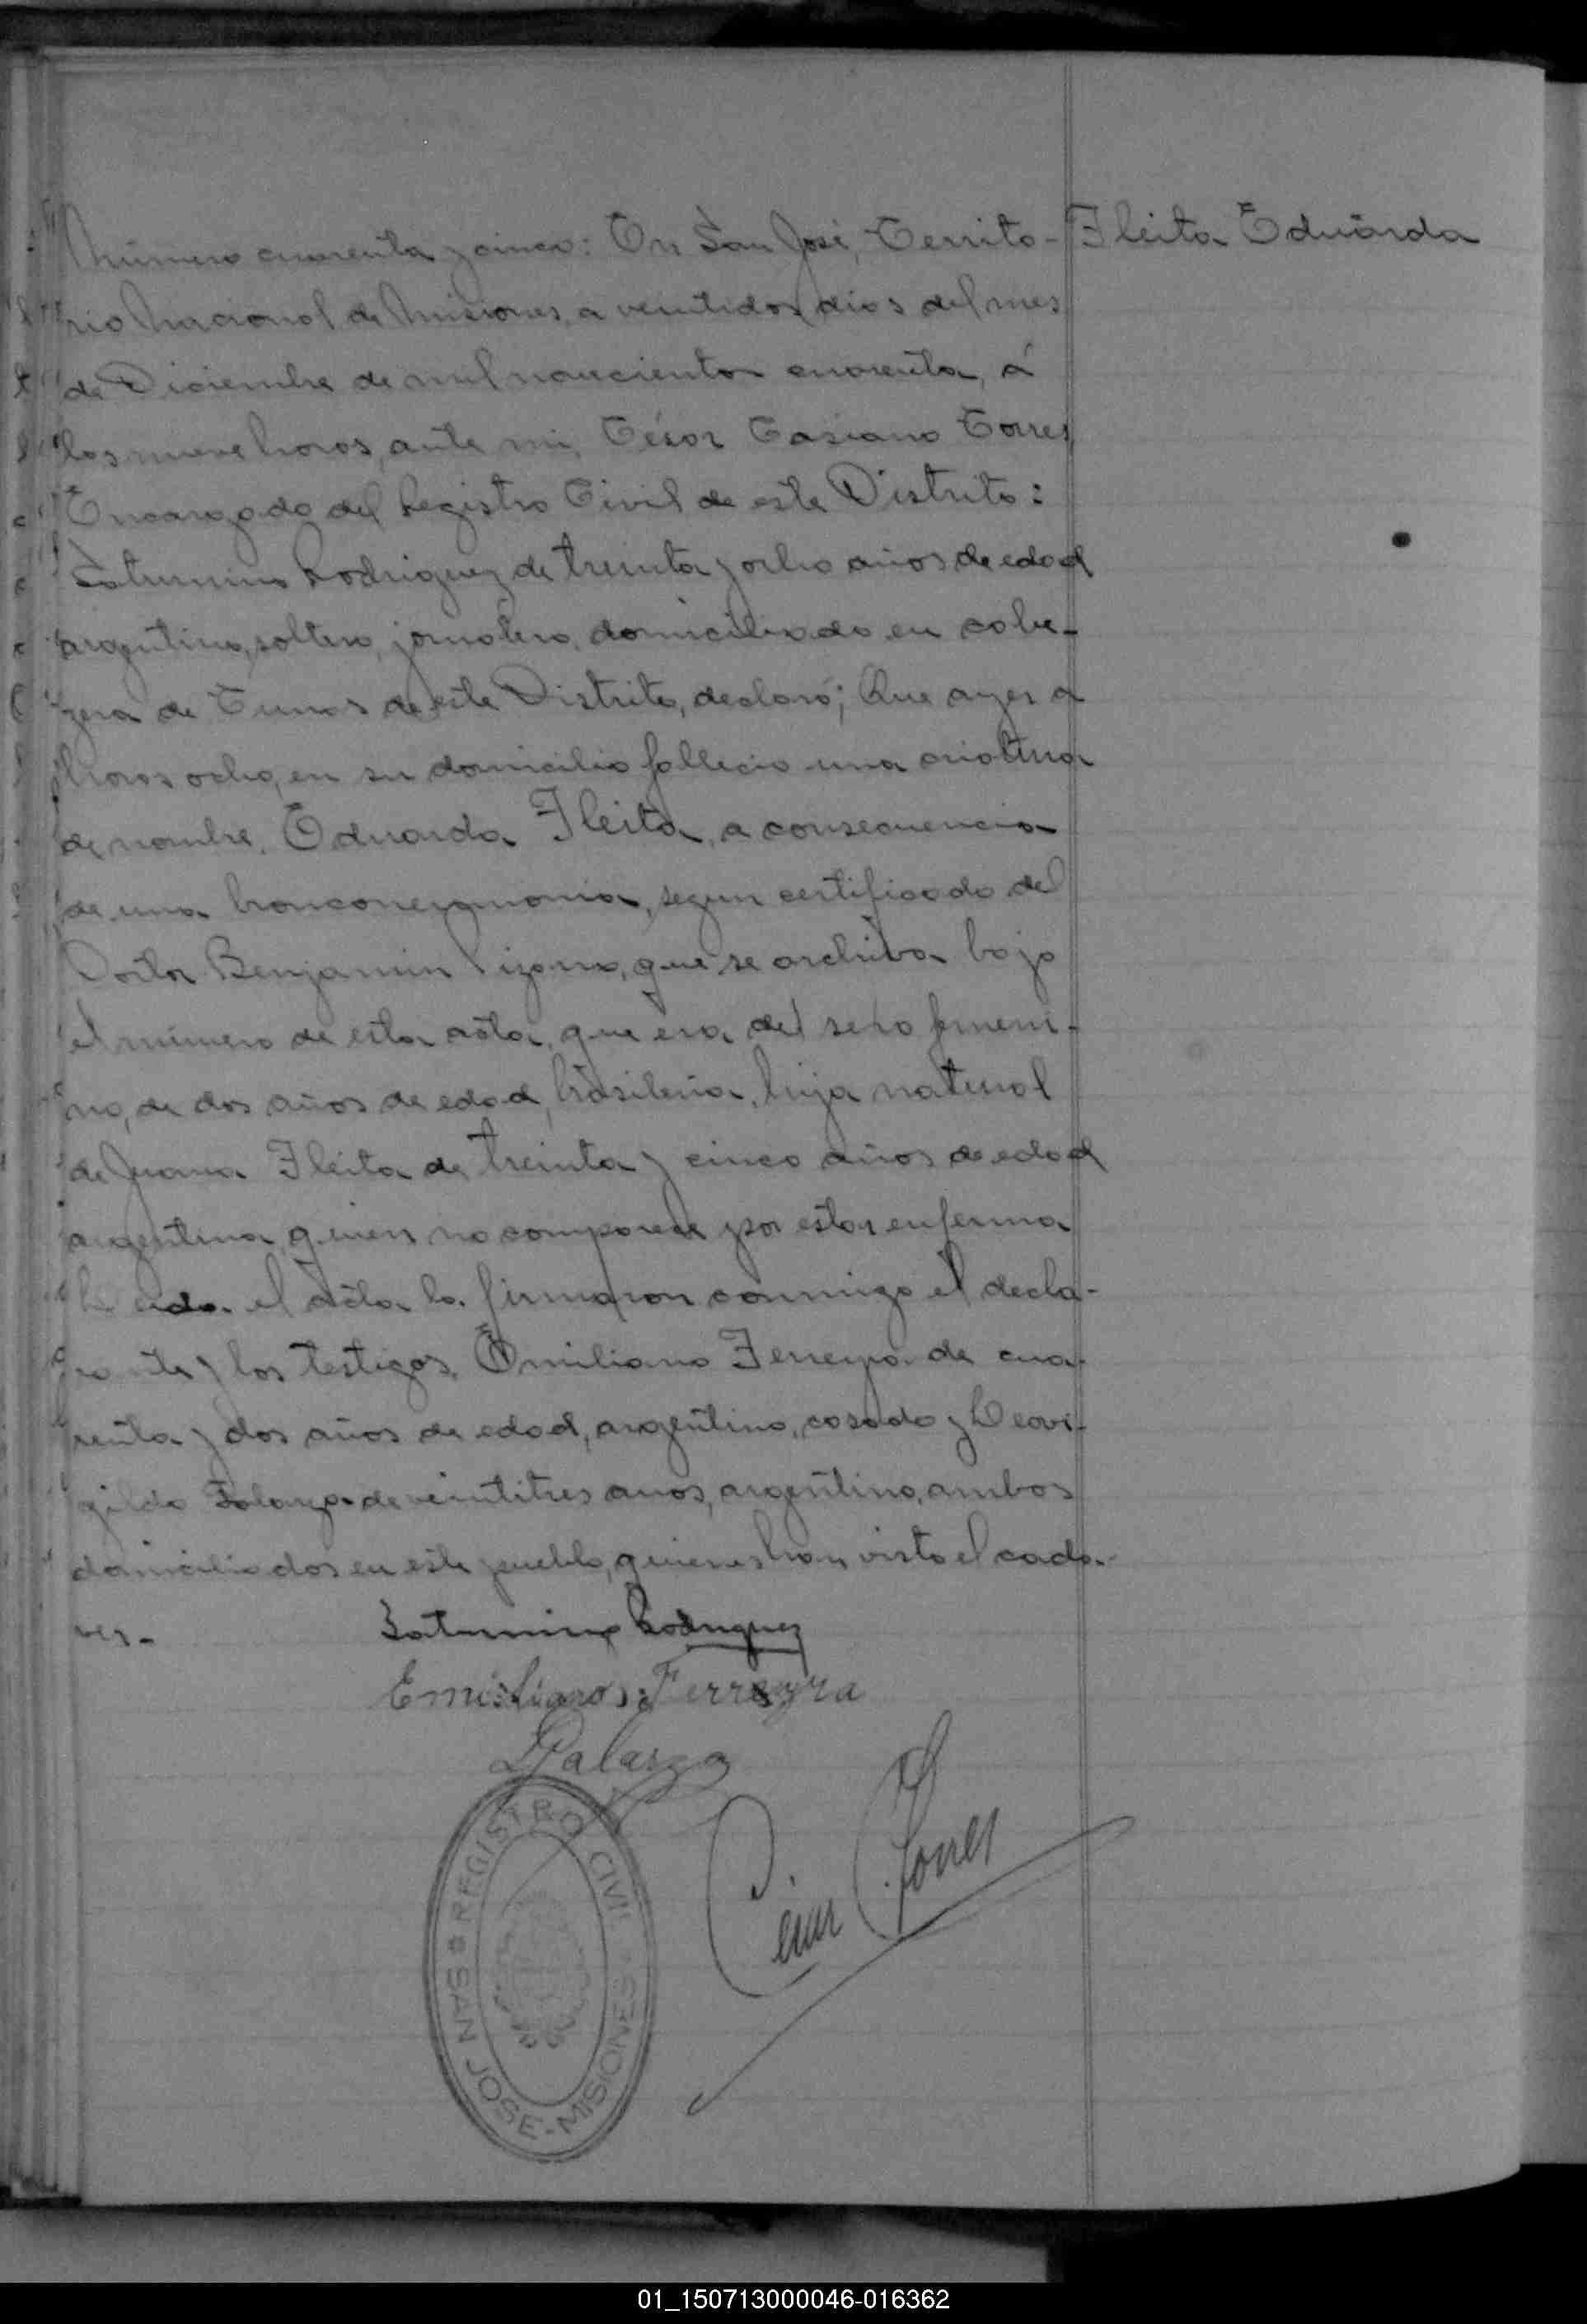 Número cuarenta y cinco: En San José, Territo-
Fleita Eduarda
rio Nacional de Misiones, a veintidos dias del mes
de Diciembre de mil novecientos cuarenta, á
las nueve horas, ante mi, César Casiano Torres
Encargado del Registro Civil de este Distrito:
Saturnino Rodriguez de treinta y ocho años de edad
argentino, soltero, jornalero, domiciliado en cabe-
zera de Tunas de este Distrito, declaró; Que ayer a
horas ocho, en su domicilio fallecio una criatura
de nombre, Eduarda Fleita, a consecuencia
de una bronconeumonia, segun certificado del
Doctor Benjamin Pizarro, que se archiva bajo
el número de esta acta, que era del sexo femeni-
no, de dos años de edad, brasileña, hija natural
de Juana Fleita de treinta y cinco años de edad
argentina, quien no comparece por estar enferma
Leida el acta la firmaron conmigo el decla-
rante y los testigos, Emiliano Ferreyra de cua-
renta y dos años de edad, argentino, casado y Leovi-
gildo Galarza de veintitres anos, argentino, ambos
domiciliados en este pueblo, quienes han visto el cada-
ver.-
Saturnino Rodriguez
Emiliano Ferreyra
LGalarza
César C Torres
REGISTRO CIVIL
SAN JOSE-MISIONES
01_150713000046-016362